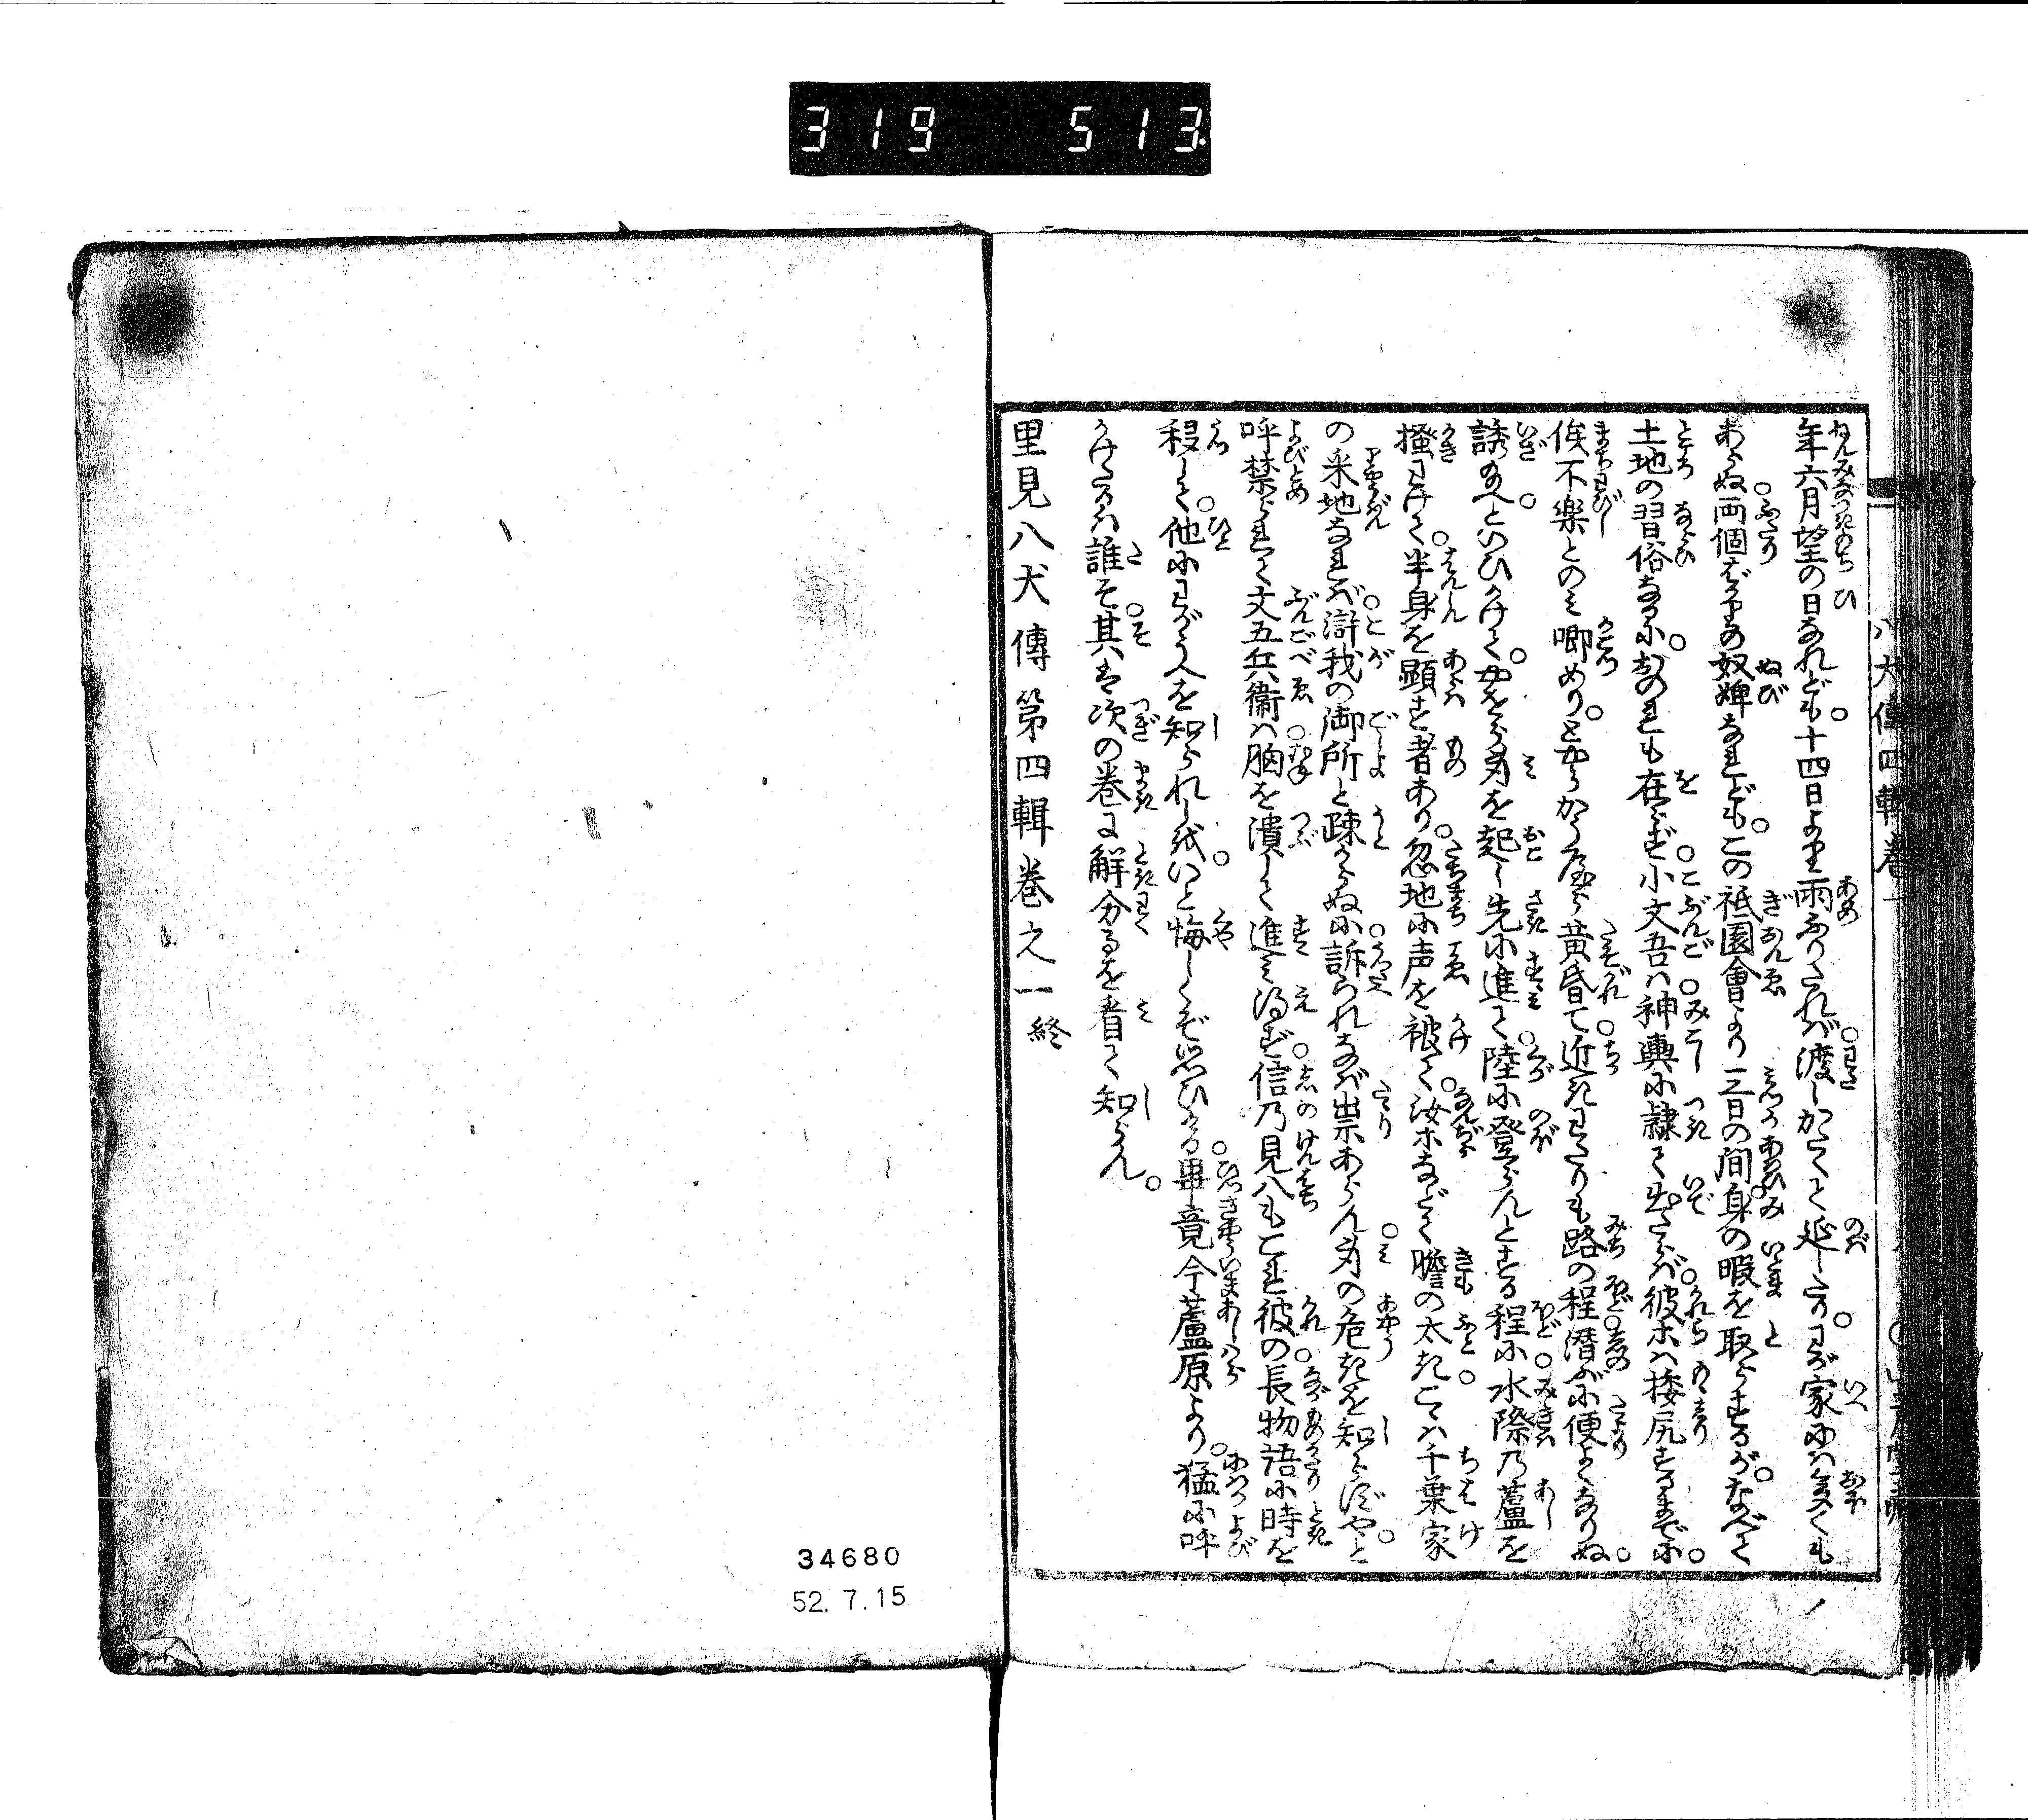 319 513
年六月望の日なれども。十四日より雨ふりたれば渡しがたくて延したり。わが家には多くも
あらぬ両個ばかりの奴婢なれども。この祇園會より三日の間。身の暇を取らするが。なべて
土地の習俗なるに。おのれも在らず小文吾は神輿に隷て出たれば。彼ホは接尻するまでに。
俟不樂とのみ喞めり。とかうかうする程に黄昏て近きわたりも路の程潜ぶに便よくなりぬ。
誘給へといひかけて。やをら身を起し先に進て。陸に登らんとする程に水際乃蘆を
掻わけて。半身を顕す者あり。忽地に声を被て。汝ホなどて膽の太き。こゝは千葉家
の采地なれば。滸我の御所と疎からぬに。訴られなば祟あらん。身の危きを知らずや。と
呼禁られて文五兵衛は。胸を潰して進み得ず。信乃見八もこれ彼の。長物語に時を
移して。他にわがうへを知られしを。いと悔しくぞ思ひける。畢竟今蘆原より。猛に呼
かけたるは誰そ。其は次の巻に解分るを看て知らん。
里見八犬傳第四輯巻之一終
八犬傳四輯巻一
34680
52.7.15